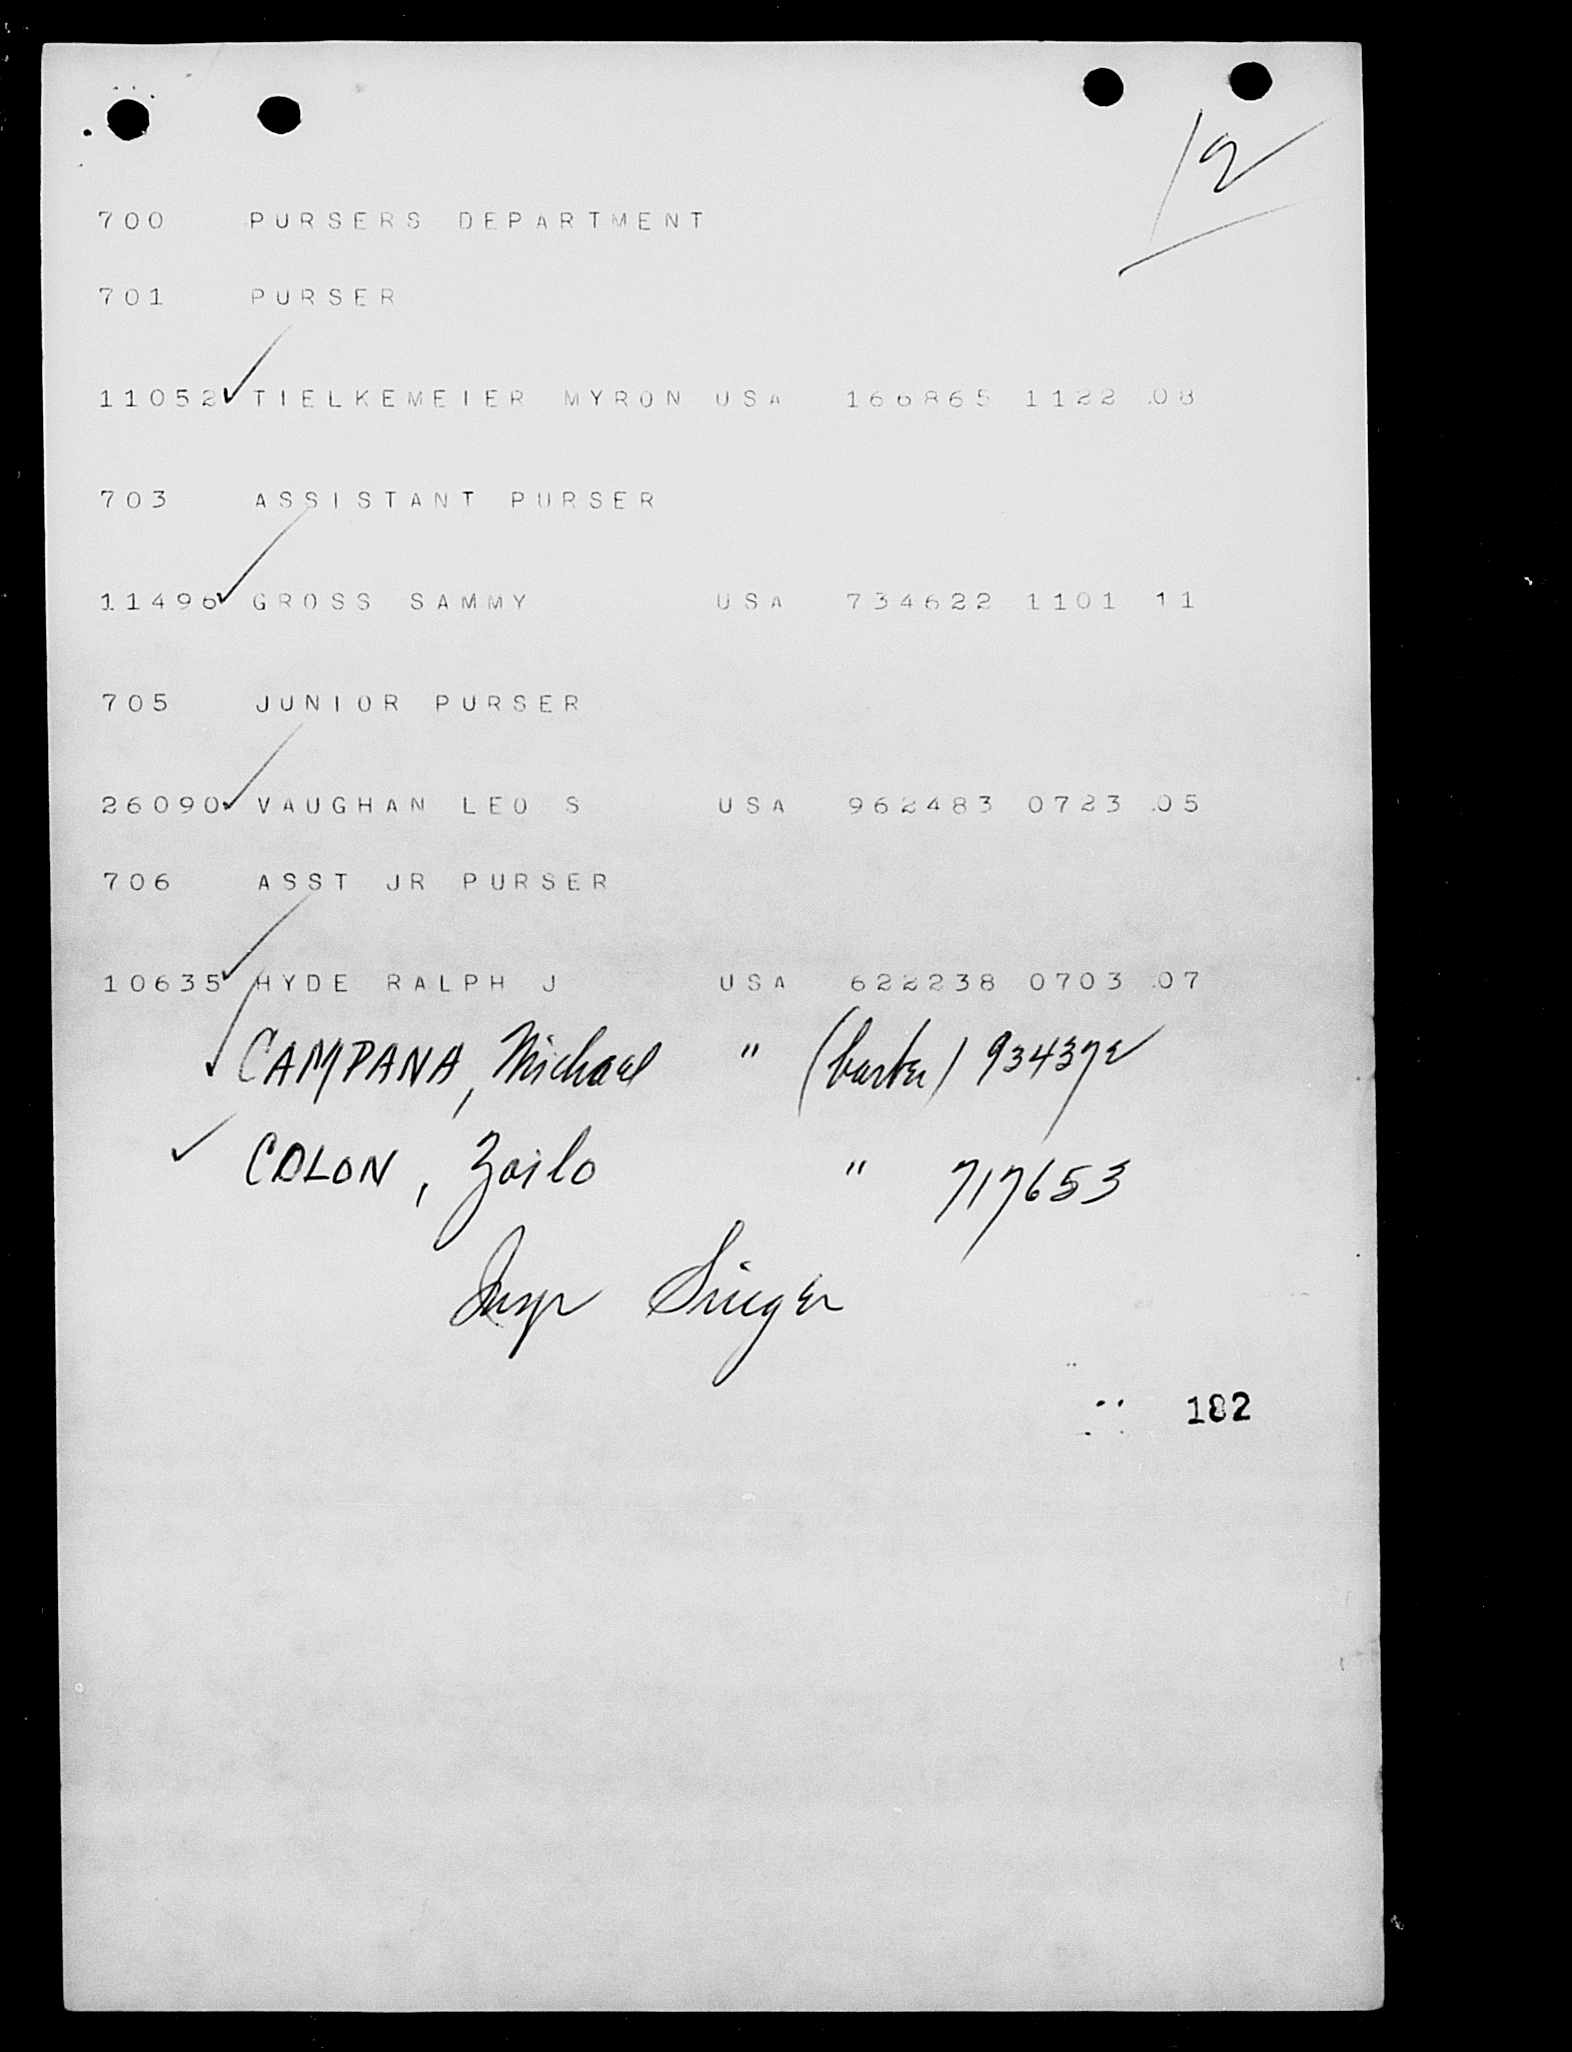 12
700 PURSERS DEPARTMENT
701 PURSER
11052 TIELKEMEIER MYRON USA 166865 1122 08
703 ASSISTANT PURSER
11496 GROSS SAMMY USA 734622 1101 11
705 JUNIOR PURSER
26090 VAUGHAN LEO S USA 962483 0723 05
706 ASST JR PURSER
10635 HYDE RALPH J USA 622238 0703 07
CAMPANA, Michael " (barber) 934372
COLON, Zoilo " 717653
Insp Singer
182